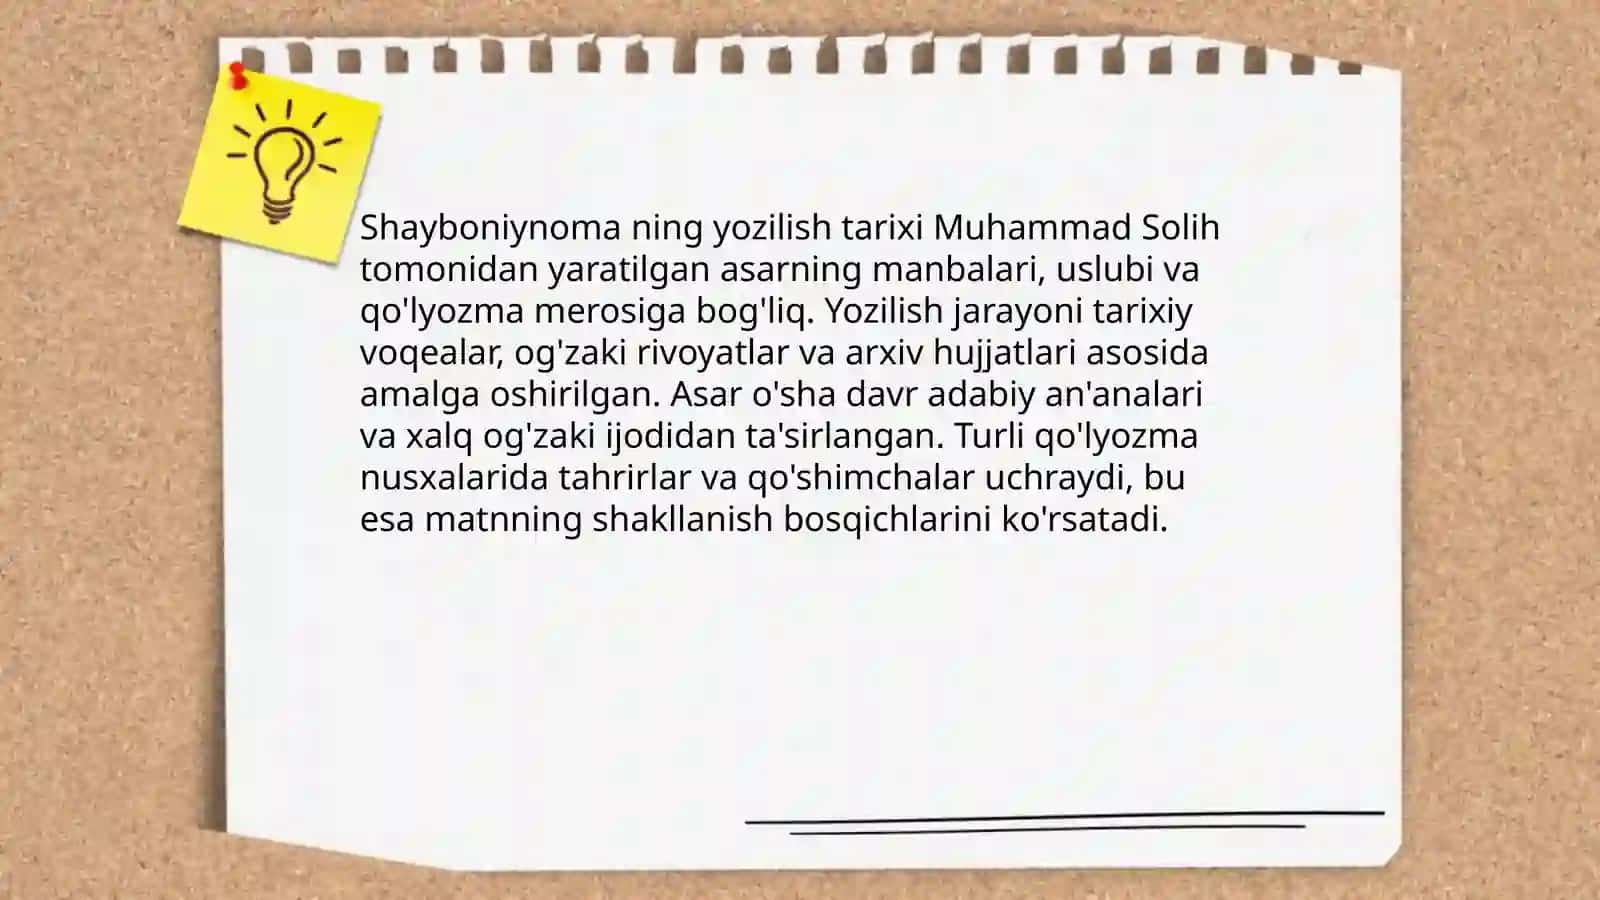 Shayboniynoma ning yozilish tarixi Muhammad Solih
tomonidan yaratilgan asarning manbalari, uslubi va
qo'lyozma merosiga bog'liq. Yozilish jarayoni tarixiy
voqealar, og'zaki rivoyatlar va arxiv hujjatlari asosida
amalga oshirilgan. Asar o'sha davr adabiy an'analari
va xalq og'zaki ijodidan ta'sirlangan. Turli qo'lyozma
nusxalarida tahrirlar va qo'shimchalar uchraydi, bu
esa matnning shakllanish bosqichlarini ko'rsatadi.